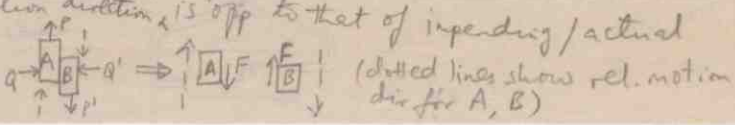 direction, is opp to that of impending/actual
P
Q → A B ← Q' ⇒ A F F B (dotted lines show rel. motion
P' dir for A, B)